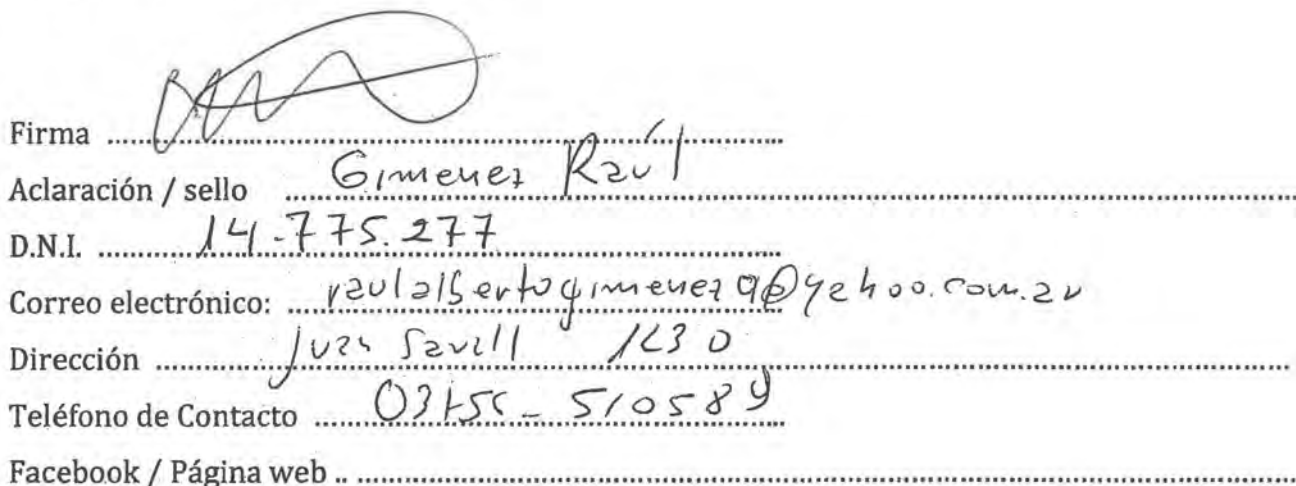 Firma
Aclaración / sello Gimenez Raúl
D.N.I. 14.775.277
Correo electrónico: raulalbertogimenez9@yahoo.com.ar
Dirección Juan
Teléfono de Contacto 510589
Facebook / Página web ..